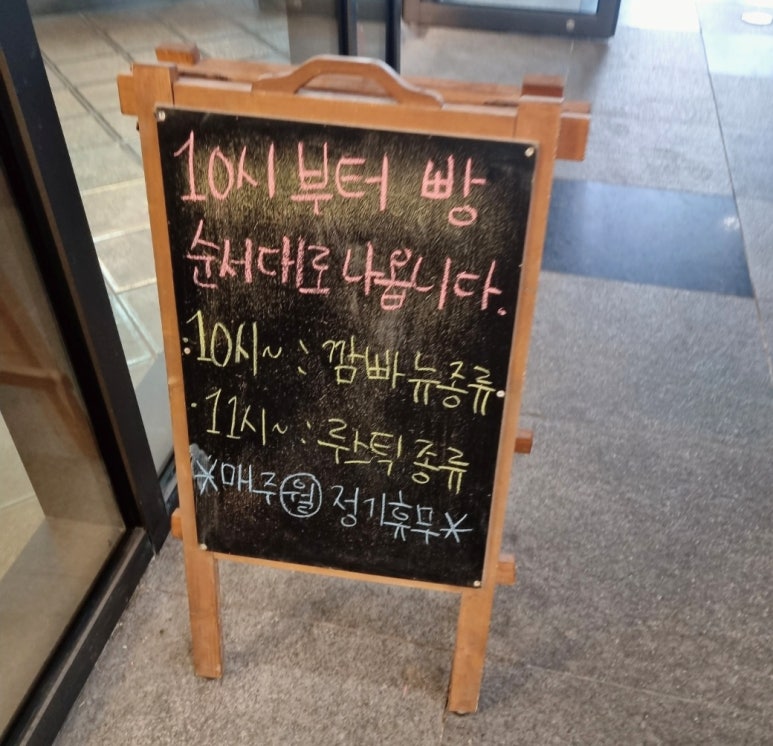 10시 부터 빵
순서대로 나옵니다.
·10시~ : 깜빠뉴종류
·11시~ : 루스틱 종류
*매주 월 정기휴무*